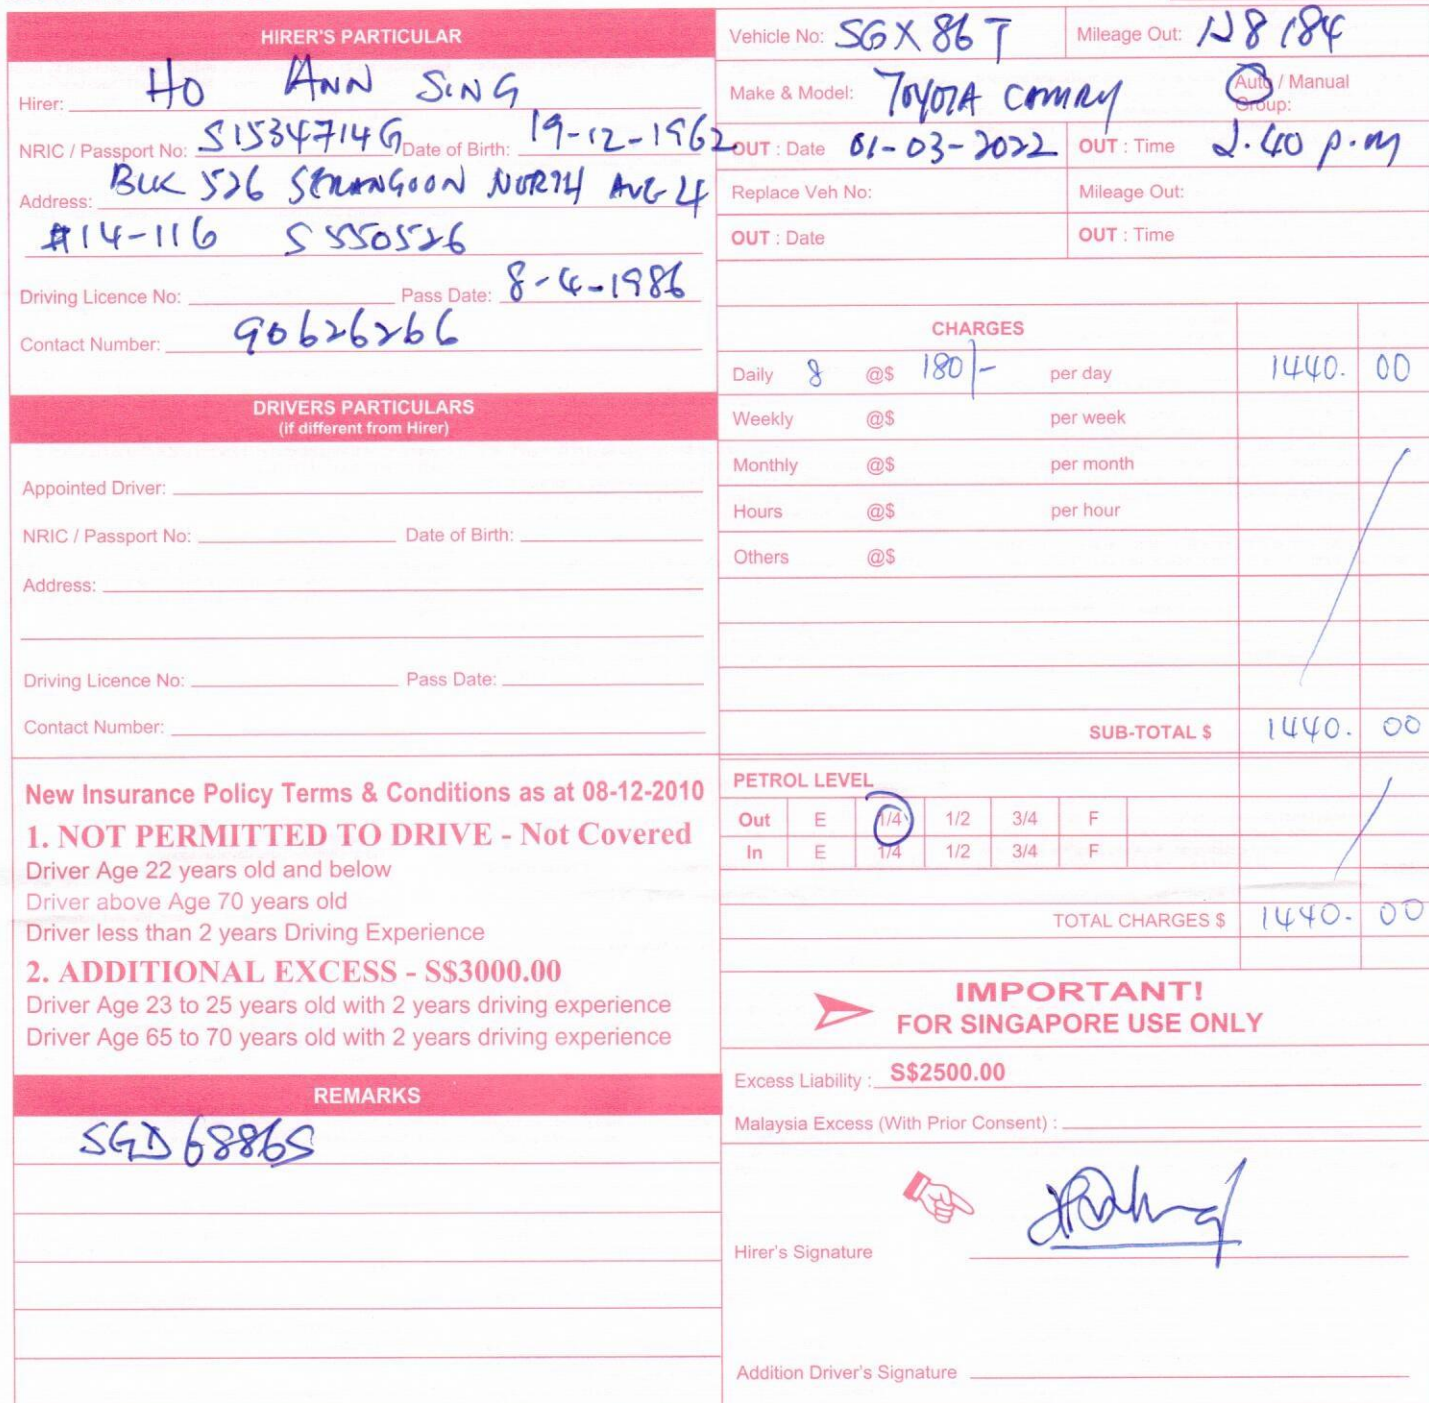 HIRER'S PARTICULAR
Hirer: HO ANN SING
NRIC / Passport No: S1534714G Date of Birth: 19-12-1962
Address: BLK 526 SERANGOON NORTH AVE 4
#14-116 S 550526
Driving Licence No: Pass Date: 8-4-1986
Contact Number: 90626266
DRIVERS PARTICULARS
(if different from Hirer)
Appointed Driver:
NRIC / Passport No: Date of Birth:
Address:
Driving Licence No: Pass Date:
Contact Number:
New Insurance Policy Terms & Conditions as at 08-12-2010
1. NOT PERMITTED TO DRIVE - Not Covered
Driver Age 22 years old and below
Driver above Age 70 years old
Driver less than 2 years Driving Experience
2. ADDITIONAL EXCESS - S$3000.00
Driver Age 23 to 25 years old with 2 years driving experience
Driver Age 65 to 70 years old with 2 years driving experience
REMARKS
SGD 6886S
Vehicle No: SGX 86 T Mileage Out: 128184
Make & Model: TOYOTA CAMRY Auto / Manual
Group:
OUT : Date 01-03-2022 OUT : Time 2.40 p.m
Replace Veh No: Mileage Out:
OUT : Date OUT : Time
CHARGES
Daily 8 @$ 180/- per day 1440. 00
Weekly @$ per week
Monthly @$ per month
Hours @$ per hour
Others @$
SUB-TOTAL $ 1440. 00
PETROL LEVEL
Out E 1/4 1/2 3/4 F
In E 1/4 1/2 3/4 F
TOTAL CHARGES $ 1440. 00
IMPORTANT!
FOR SINGAPORE USE ONLY
Excess Liability : S$2500.00
Malaysia Excess (With Prior Consent) :
Hirer's Signature
Addition Driver's Signature